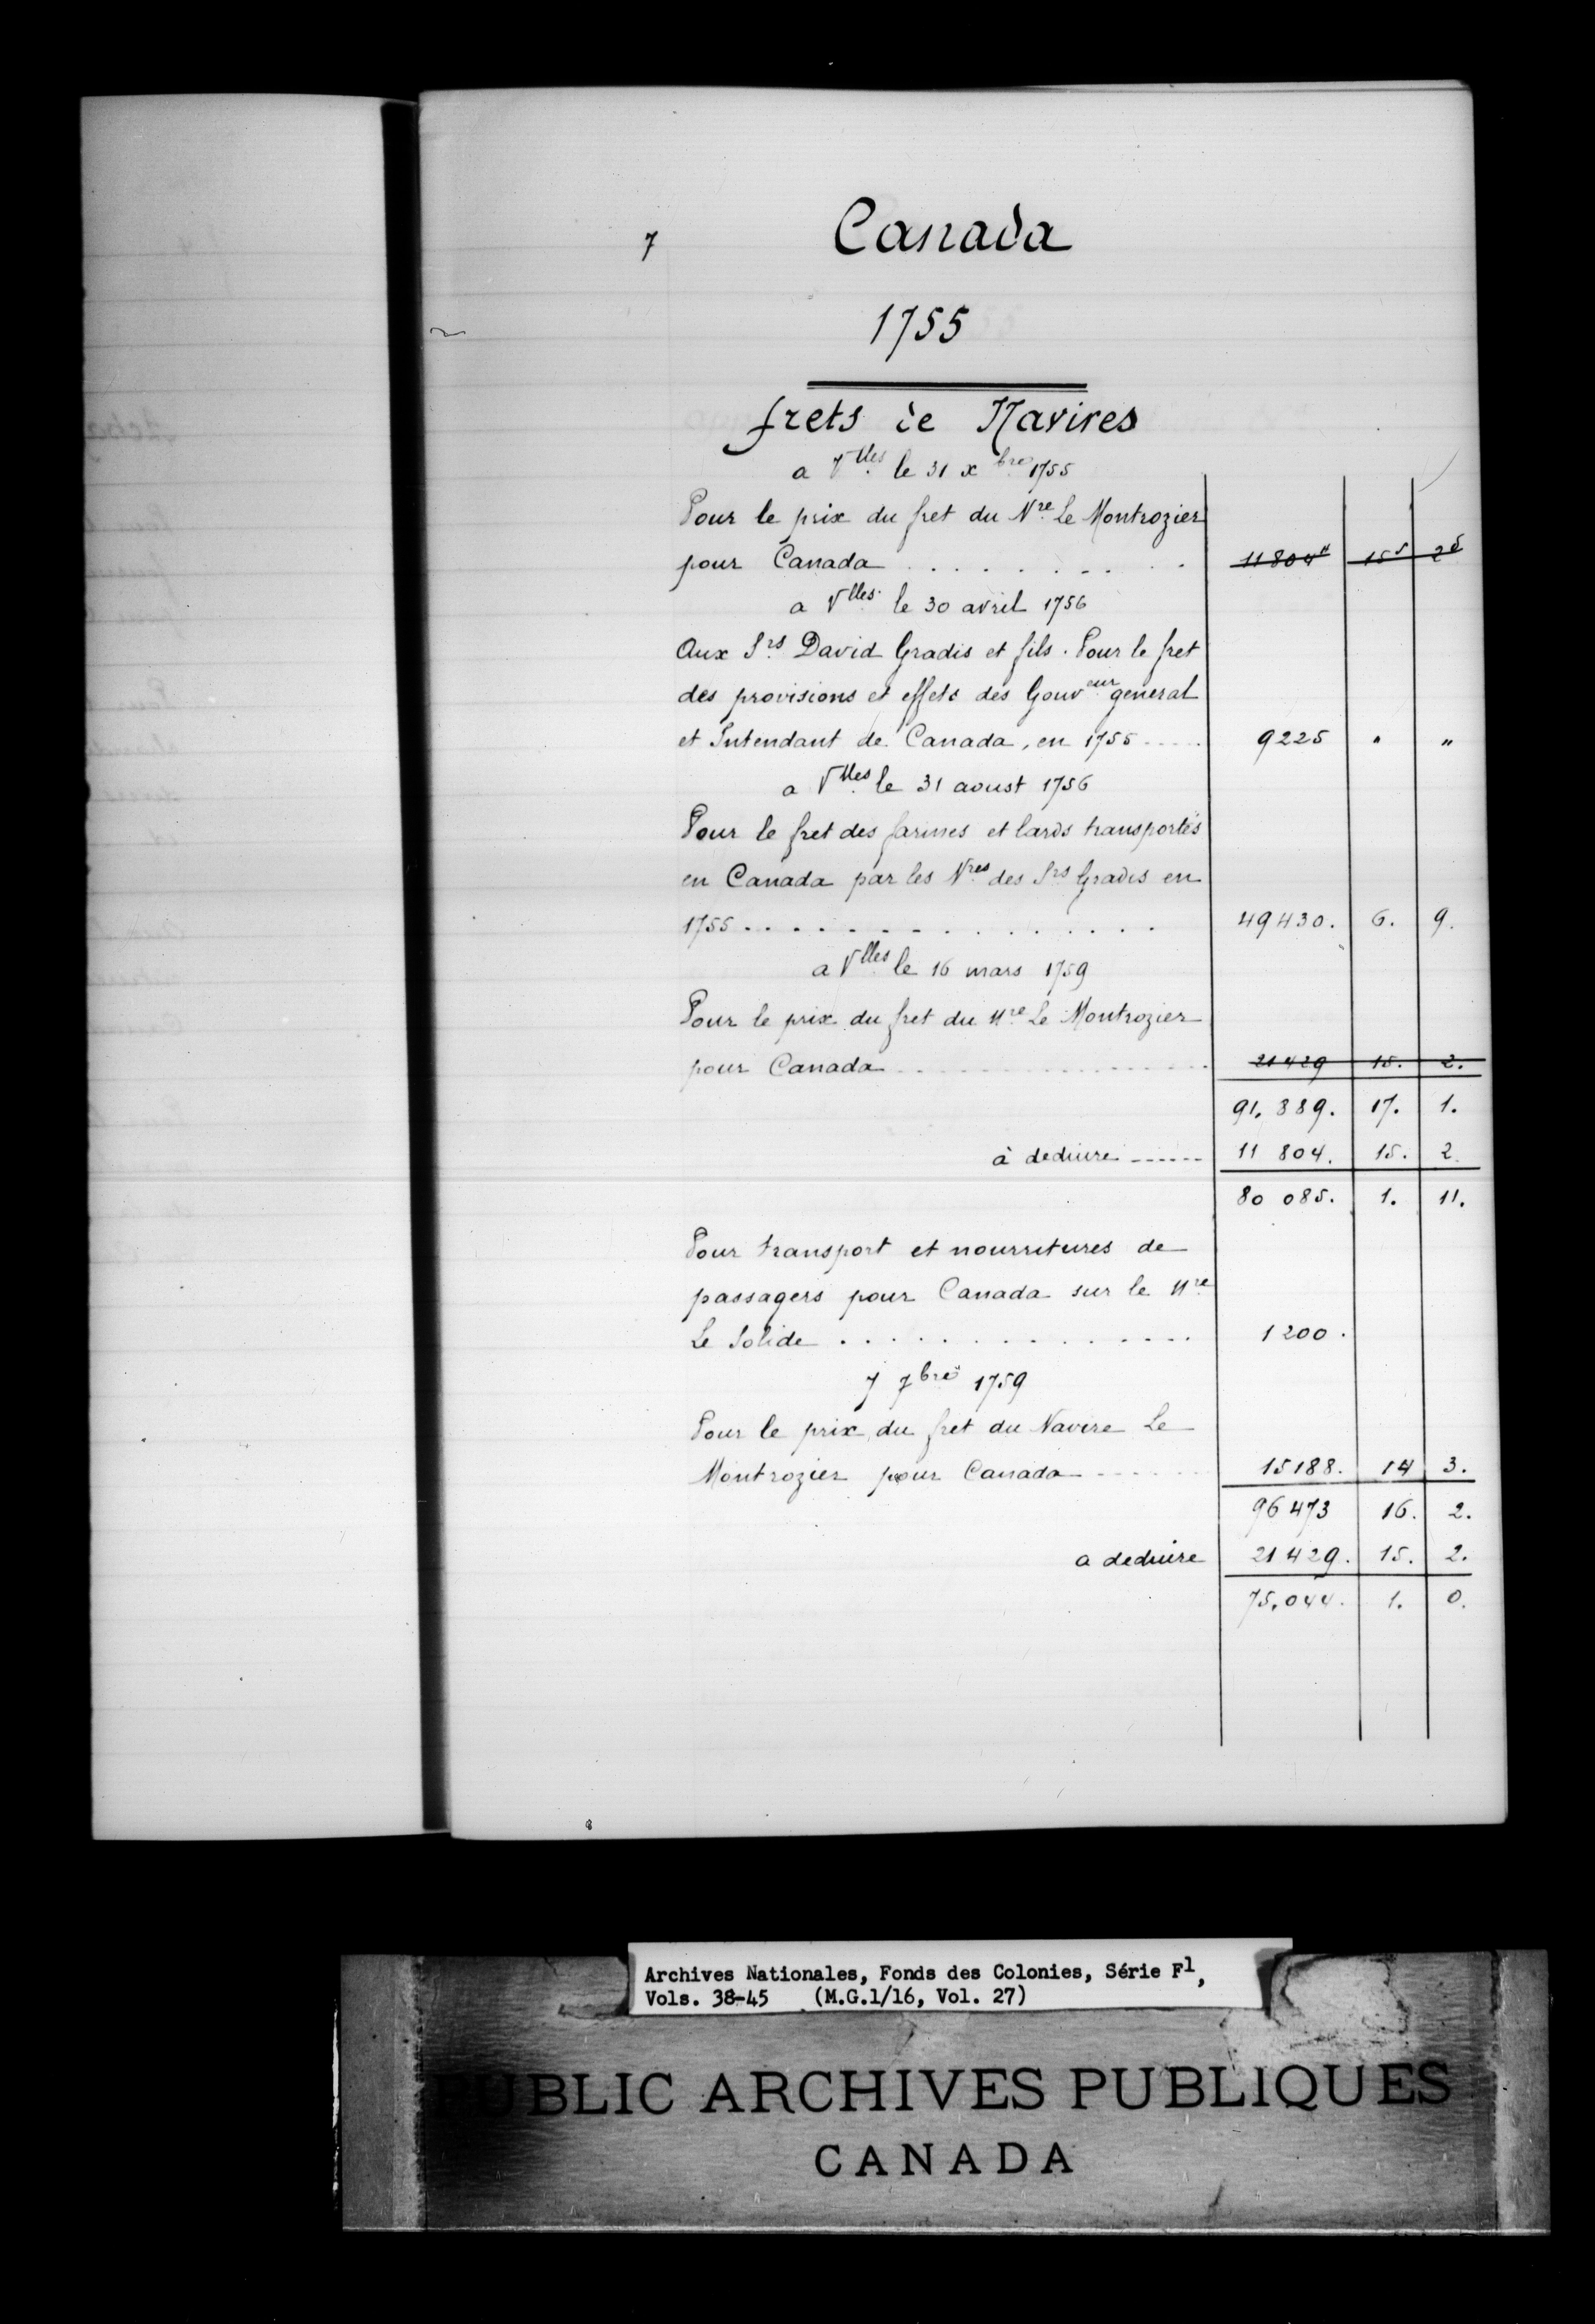 7 Canada
1755
frets de Navires
a Vlles le 31 xbre 1755
Pour le prix du fret du Nre Le Montrozier
pour Canada . . . . . . . . 11804# 15s 2d
a Vlles le 30 avril 1756
Aux Srs David Gradis et fils. Pour le fret
des provisions et effets des Gouveur general
et Intendant de Canada, en 1755 ..... 9225 " "
a Vlles le 31 aoust 1756
Pour le fret des farines et lards transportés
en Canada par les Nres des Srs Gradis en
1755 . . . . . . . . . . . . . . . 49430. 6. 9.
a Vlles le 16 mars 1759
Pour le prix du fret du Nre Le Montrozier
pour Canada ................ 21429 15. 2.
91,889. 17. 1.
à deduire ------ 11 804. 15. 2.
80 085. 1. 11.
Pour transport et nourritures de
passagers pour Canada sur le Nre
Le Solide . . . . . . . . . . . . . . 1200.
7 7bre 1759
Pour le prix du fret du Navire Le
Montrozier pour Canada ------ 15188. 14 3.
96 473 16. 2.
a deduire 21429. 15. 2.
75,044. 1. 0.
Archives Nationales, Fonds des Colonies, Série F1,
Vols. 38-45 (M.G.1/16, Vol. 27)
PUBLIC ARCHIVES PUBLIQUES
CANADA